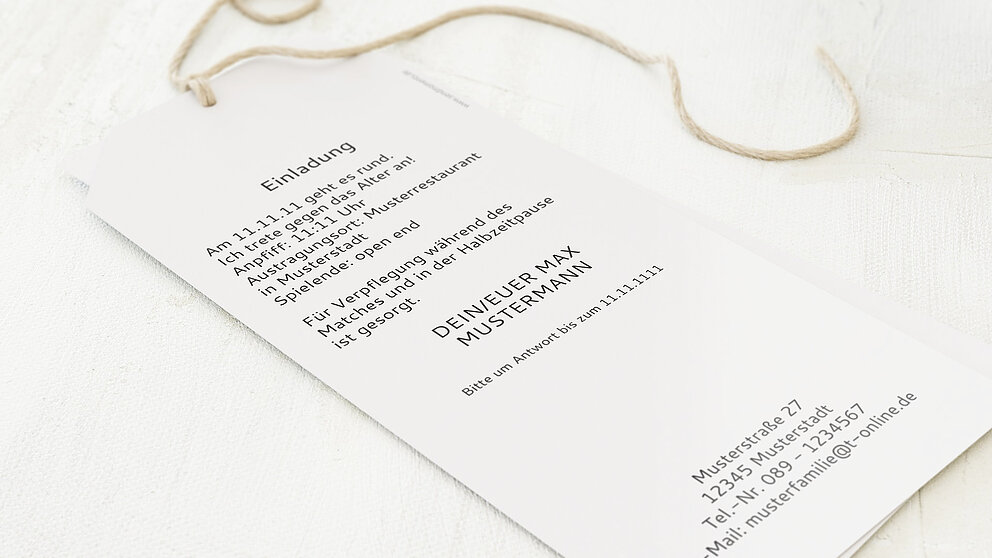 Einladung
Am 11.11.11 geht es rund.
Ich trete gegen das Alter an!
Anpfiff: 11:11 Uhr
Austragungsort: Musterrestaurant
in Musterstadt
Spielende: open end
Für Verpflegung während des
Matches und in der Halbzeitpause
ist gesorgt.
DEIN/EUER MAX
MUSTERMANN
Bitte um Antwort bis zum 11.11.1111
Musterstraße 27
12345 Musterstadt
Tel.-Nr. 089 - 1234567
-Mail: musterfamilie@t-online.de